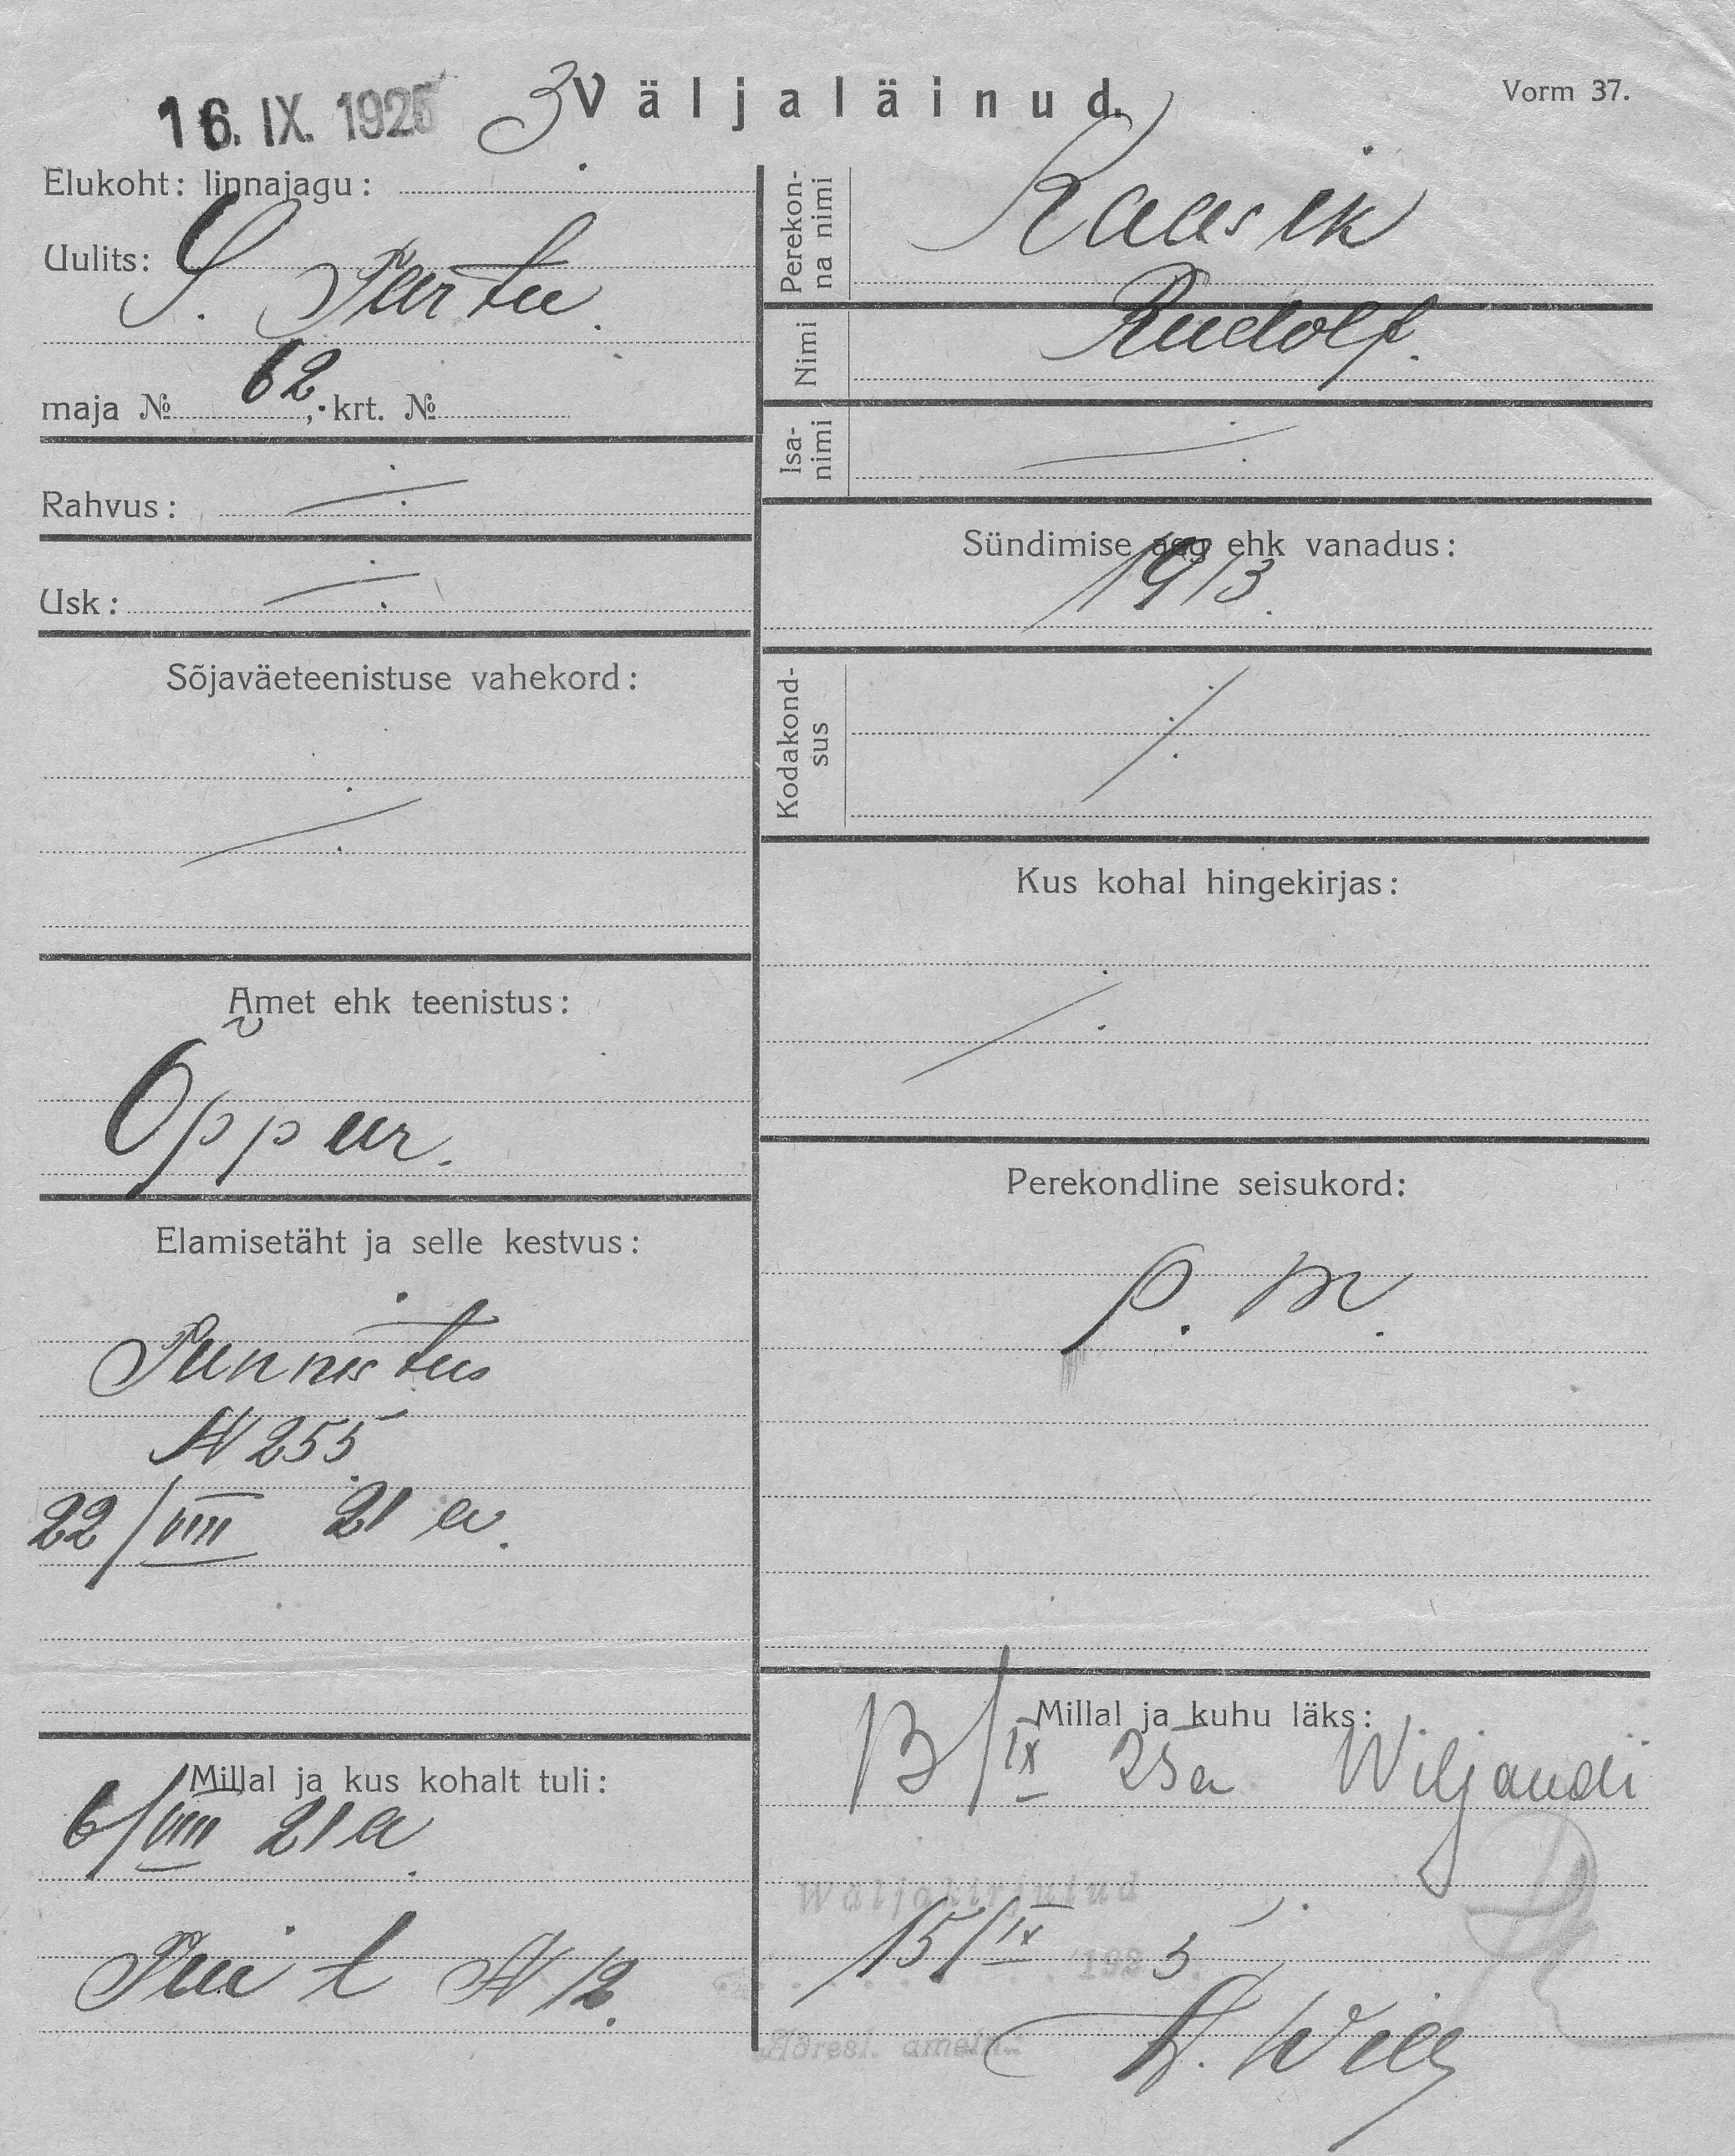 16. IX. 1925
3
Väljaläinud.
Vorm 37.
Elukoht: linnajagu:
Uulits: S. Tartu.
maja № 62, krt. №
Rahvus:
Usk:
Sõjaväeteenistuse vahekord:
Amet ehk teenistus:
Õppur.
Elamisetäht ja selle kestvus:
Tunnistus
№ 255
22/VIII 21 a.
Millal ja kus kohalt tuli:
6/VIII 21 a.
№ 12.
Perekonna nimi
Kaasik
Nimi
Rudolf.
Isanimi
Sündimise aeg ehk vanadus:
1913.
Kodakondsus
Kus kohal hingekirjas:
Perekondline seisukord:
p. m.
Millal ja kuhu läks:
13/IX 25 a Wiljandi
Wäljakirjutud
15/IX 1925.
Adresl. ametn.